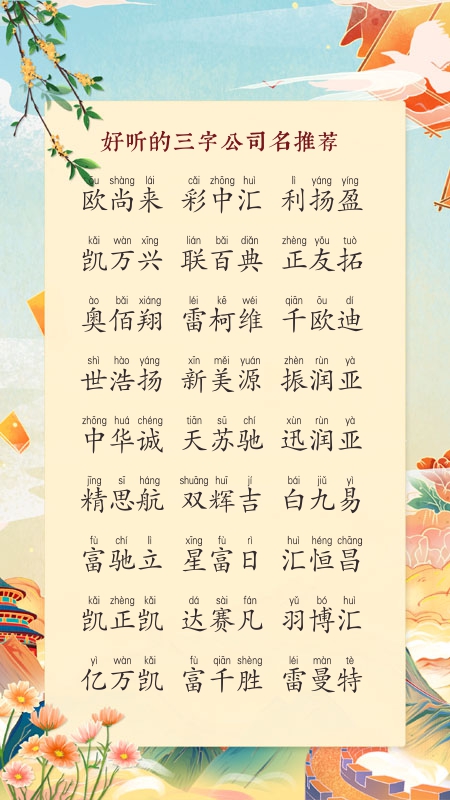 好听的三字公司名推荐
ōu shàng lái cǎi zhōng huì lì yáng yíng
欧尚来 彩中汇 利扬盈
kǎi wàn xīng lián bǎi diǎn zhèng yǒu tuò
凯万兴 联百典 正友拓
ào bǎi xiáng léi kē wéi qiān ōu dí
奥佰翔 雷柯维 千欧迪
shì hào yáng xīn měi yuán zhèn rùn yà
世浩扬 新美源 振润亚
zhōng huá chéng tiān sū chí xùn rùn yà
中华诚 天苏驰 迅润亚
jīng sī háng shuāng huī jí bái jiǔ yì
精思航 双辉吉 白九易
fù chí lì xīng fù rì huì héng chāng
富驰立 星富日 汇恒昌
kǎi zhèng kǎi dá sài fán yǔ bó huì
凯正凯 达赛凡 羽博汇
yì wàn kǎi fù qiān shèng léi màn tè
亿万凯 富千胜 雷曼特